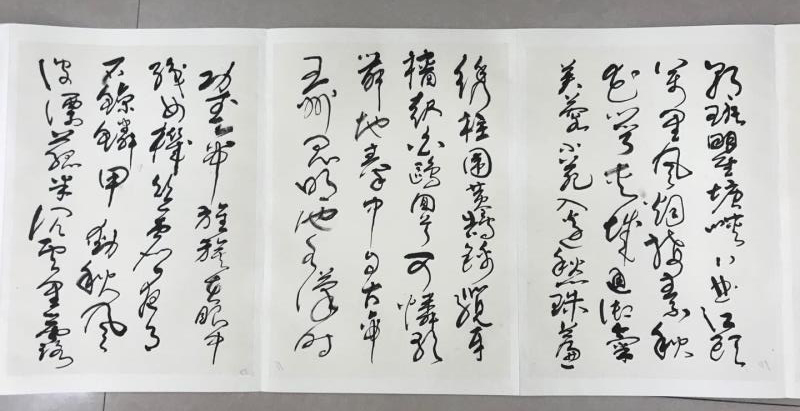 朝班瞿塘峽口曲江頭
萬里風烟接素秋
花萼夾城通御氣
芙蓉小苑入邊愁珠簾
繡柱圍黃鵠錦纜牙
檣起白鷗回首可憐歌
舞地秦中自古帝
王州昆明池水漢時
功武帝旌旗在眼中
織女機絲虛夜月
石鯨鱗甲動秋風
波漂菰米沉雲黑露